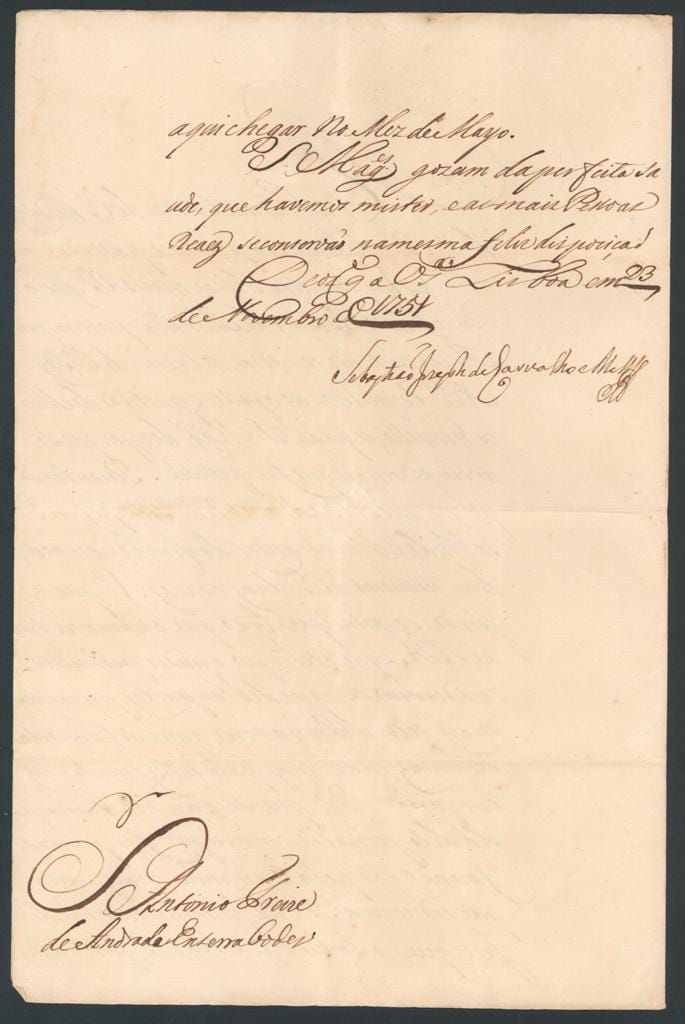 aqui chegar No Mez de Mayo.
S. Mag.es gozam da perfeita sa
ude, que havemos mister, e as mais Pessoas
Reaez se conservaõ na mesma feliz disposiçaõ
Deos g.a V S.a Lisboa em 23
de Novembro de 1751
Sebastiaõ Joseph de Carvalho e Mello
S.r Antonio Freire
de Andrade Enserrabodes